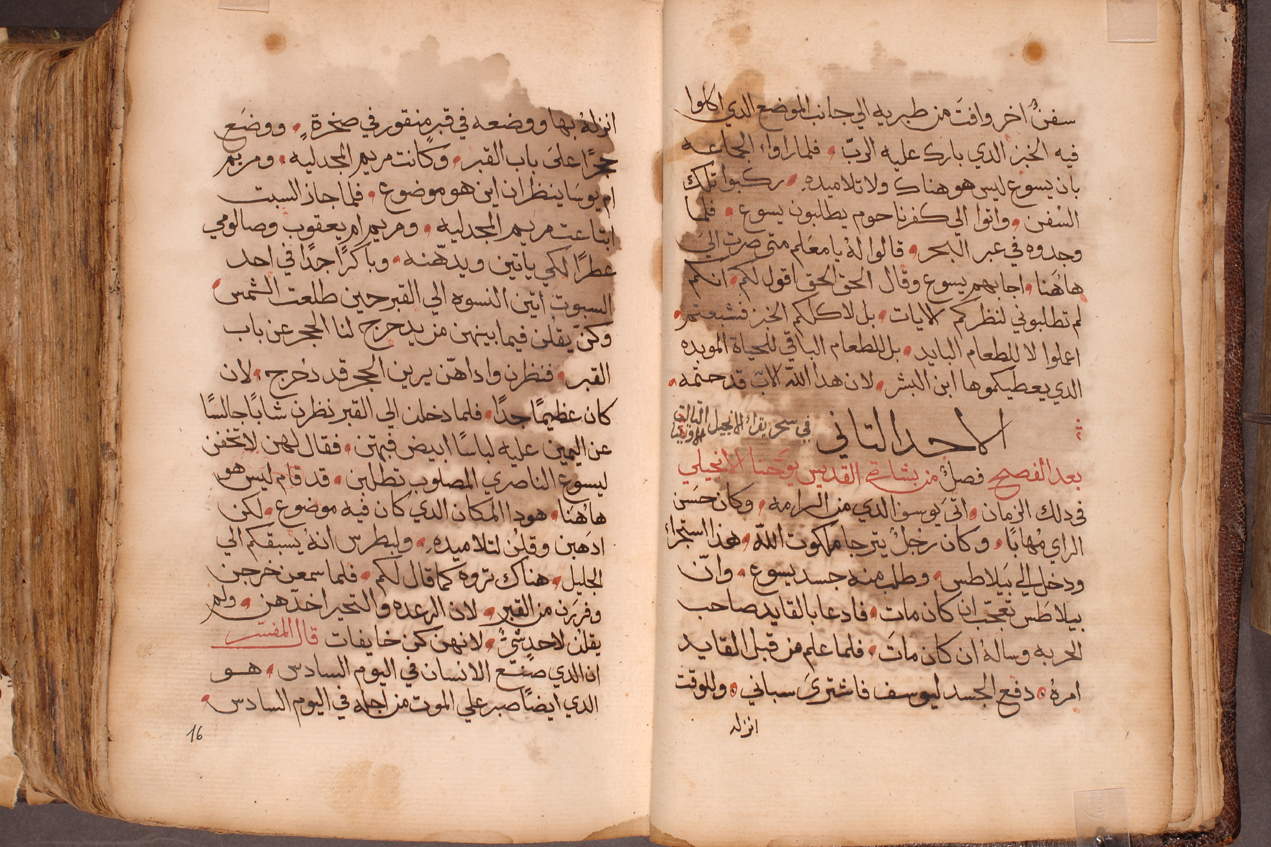 سفنٌ اخر وافت من طبريه الي جانب الموضع الدي اكلوا
فيه الخبز الدي بارك عليه الربّ فلما راوا الجماعه
بان يسوع ليس هو هناك ولا تلاميده ركبوا تلك
السفن واتوا الي كفرناحوم يطلبون يسوع فلما
وجدوه في عبر البحر قالوا له يا معلم متي صرت الي
هاهنا اجابهم يسوع وقال الحق الحق اقول لكم انكم
لم تطلبوني لنظركم الايات بل لاكلكم الخبز فشبعتم
اعملوا لا للطعام البايد بل للطعام الباقي للحياة الموبده
الدي يعطيكموها ابن البشر لان هدا اللّه الاب قد ختمه
الاحد التاني في سحر يقرا الانجيل التالت
بعد الفصح فصلٌ من بشارة القديس يوحنا الانجيلي
في دلك الزمان اتي يوسف الدي من الرامه وكان حسن
الراي مُهابًا وكان رجل يترجا ملكوت اللّه فهدا استجرا
ودخل الي بيلاطس وطلب منه جسد يسوع وان
بيلاطس تعجب ان كان مات فادعا بالقايد صاحب
الحربه وساله ان كان مات فلما علم من قبل القايد
امره دفع الجسد ليوسف فاشتري سباني وللوقت
انزله
انزله بها ووضعه في قبر منقور في صخرة ووضع
حجرًا علي باب القبر وكانت مريم المجدليه ومريم
ام يوسا ينظران اين هو موضوع فلما جاز السبت
ابتاعت مريم المجدليه ومريم ام يعقوب وصالومي
عطرًا لكي ياتين ويدهنه وباكرًا جدًا في احد
السبوت اتين النسوه الي القبر حين طلعت الشمس
وكن يقلن فيما بينهن من يدحرج لنا الحجر عن باب
القبر فنظرن وادا هن يرين الحجر قد دُحرج لان
كان عظيمًا جدًا فلما دخلن الي القبر نظرن شابًا جالسًا
عن اليمين عليه لباسًا ابيض فبهتن فقال لهن لا تخفن
ليسوع الناصري المصلوب تطلبن قد قام ليس هو
هاهُنا هودا المكان الدي كان فيه موضوع لكن
ادهبن وقلن لتلاميده وليطرس انه يسبقكم الي
الجليل هناك تروه كما قال لكم فلما سمعن خرجن
وفررن من القبر لان الرعده والتحير اخدهن ولم
يقلن لاحدٍ شيٌ لانهن كن خايفات قال المفسّر
ان الدي صنع الانسان في اليوم السادس هو
الدي ايضًا صبر علي الموت من اجله في اليوم السادس
16